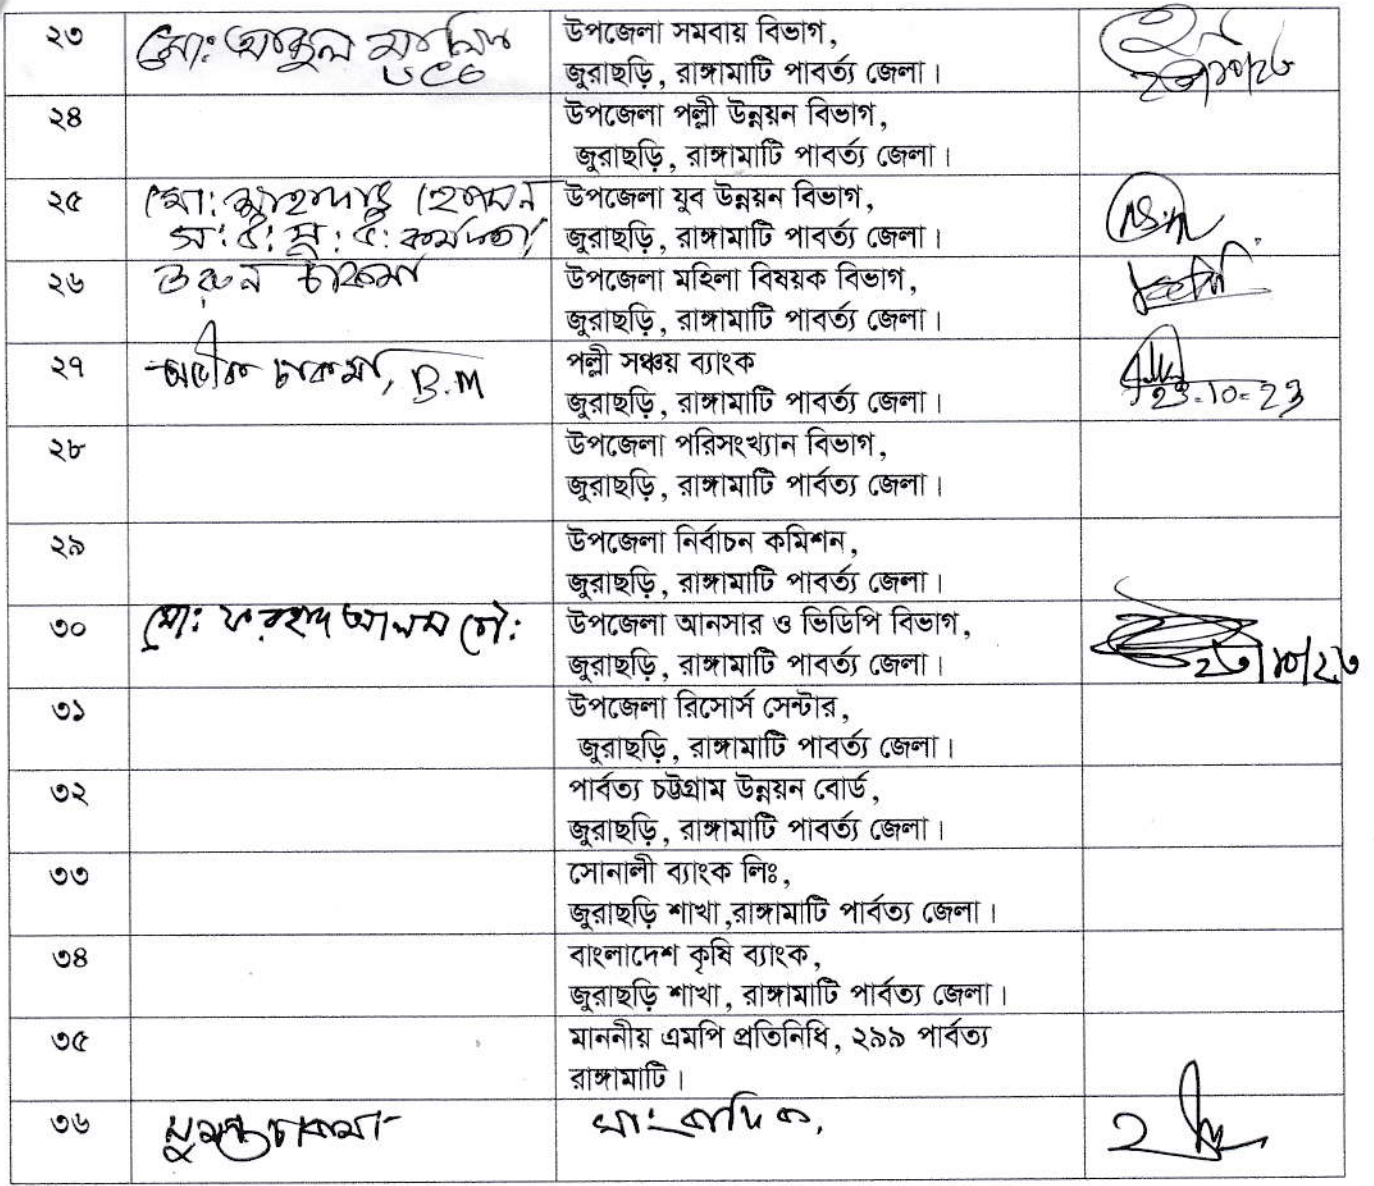 ২৩ মোঃ আব্দুল মালিক উপজেলা সমবায় বিভাগ,
জুরাছড়ি, রাঙ্গামাটি পাবর্ত্য জেলা। ২৩/১০/২৩
২৪ উপজেলা পল্লী উন্নয়ন বিভাগ,
জুরাছড়ি, রাঙ্গামাটি পাবর্ত্য জেলা।
২৫ মো: হোসেন উপজেলা যুব উন্নয়ন বিভাগ,
জুরাছড়ি, রাঙ্গামাটি পাবর্ত্য জেলা।
২৬ তরুন চাকমা উপজেলা মহিলা বিষয়ক বিভাগ,
জুরাছড়ি, রাঙ্গামাটি পাবর্ত্য জেলা।
২৭ চাকমা, B.M পল্লী সঞ্চয় ব্যাংক
জুরাছড়ি, রাঙ্গামাটি পাবর্ত্য জেলা। 23.10-23
২৮ উপজেলা পরিসংখ্যান বিভাগ,
জুরাছড়ি, রাঙ্গামাটি পার্বত্য জেলা।
২৯ উপজেলা নির্বাচন কমিশন,
জুরাছড়ি, রাঙ্গামাটি পাবর্ত্য জেলা।
৩০ মো: ফরহাদ আলম চৌ: উপজেলা আনসার ও ভিডিপি বিভাগ,
জুরাছড়ি, রাঙ্গামাটি পাবর্ত্য জেলা। ২৩/১০/২৩
৩১ উপজেলা রিসোর্স সেন্টার,
জুরাছড়ি, রাঙ্গামাটি পাবর্ত্য জেলা।
৩২ পার্বত্য চট্টগ্রাম উন্নয়ন বোর্ড,
জুরাছড়ি, রাঙ্গামাটি পাবর্ত্য জেলা।
৩৩ সোনালী ব্যাংক লিঃ,
জুরাছড়ি শাখা,রাঙ্গামাটি পার্বত্য জেলা।
৩৪ বাংলাদেশ কৃষি ব্যাংক,
জুরাছড়ি শাখা, রাঙ্গামাটি পার্বত্য জেলা।
৩৫ মাননীয় এমপি প্রতিনিধি, ২৯৯ পার্বত্য
রাঙ্গামাটি।
৩৬ সুমন্ত চাকমা সাংবাদিক,